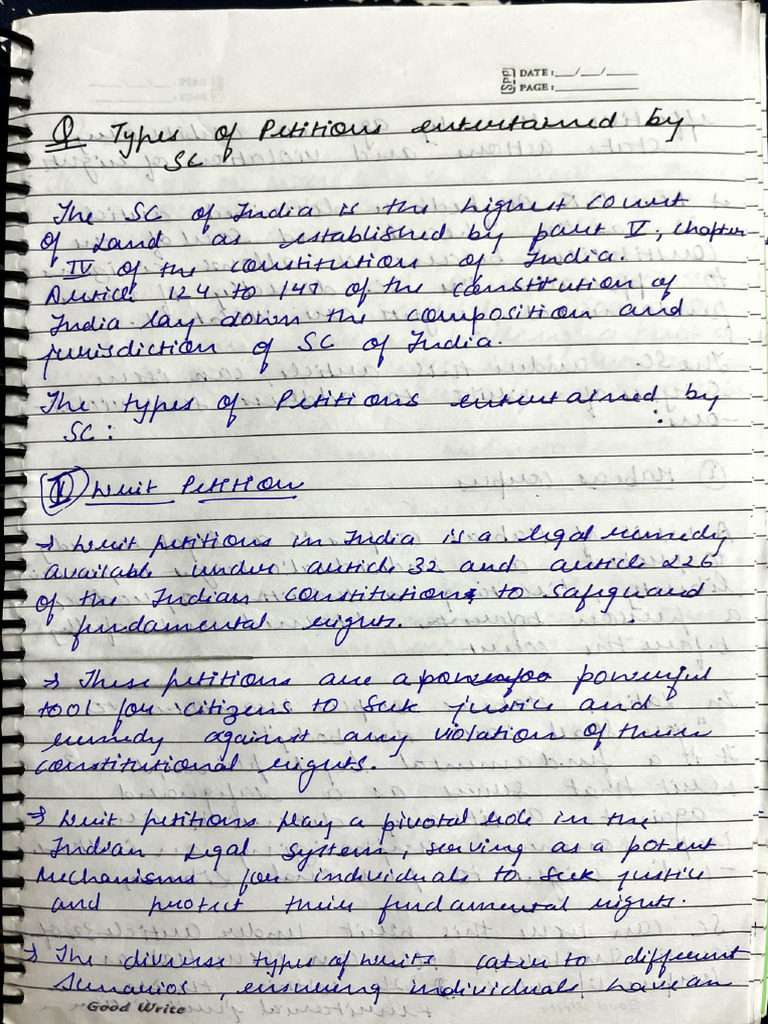 Spp DATE: __/__/____
PAGE: ________
Q. Types of Petitions entertained by
SC
The SC of India is the highest court
of Land as established by part V, chapter
IV of the constitution of India.
Article 124 to 147 of the constitution of
India lay down the composition and
jurisdiction of SC of India.
The types of Petitions entertained by
SC: :
(I) Writ Petition
→ Writ petitions in India is a legal remedy
available under article 32 and article 226
of the Indian Constitution to safeguard
fundamental rights.
→ These petitions are a powerful
tool for citizens to seek justice and
remedy against any violation of their
constitutional rights.
→ Writ petitions play a pivotal role in the
Indian Legal System, serving as a potent
mechanisms for individuals to seek justice
and protect their fundamental rights.
→ The diverse types of writs cater to different
scenarios, ensuring individuals have an
Good Write